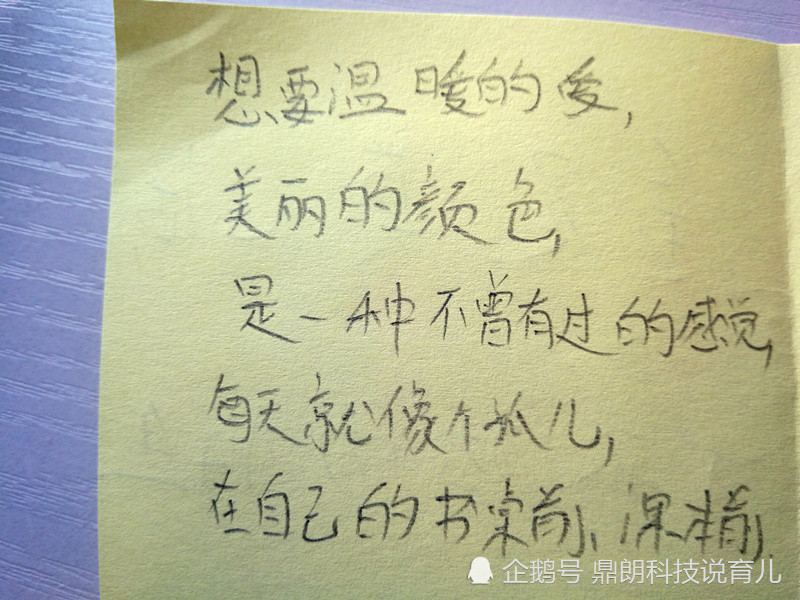 想要温暖的爱,
美丽的颜色,
是一种不曾有过的感觉,
每天就像个孤儿,
在自己的书桌前、课本前,
企鹅号 鼎朗科技说育儿